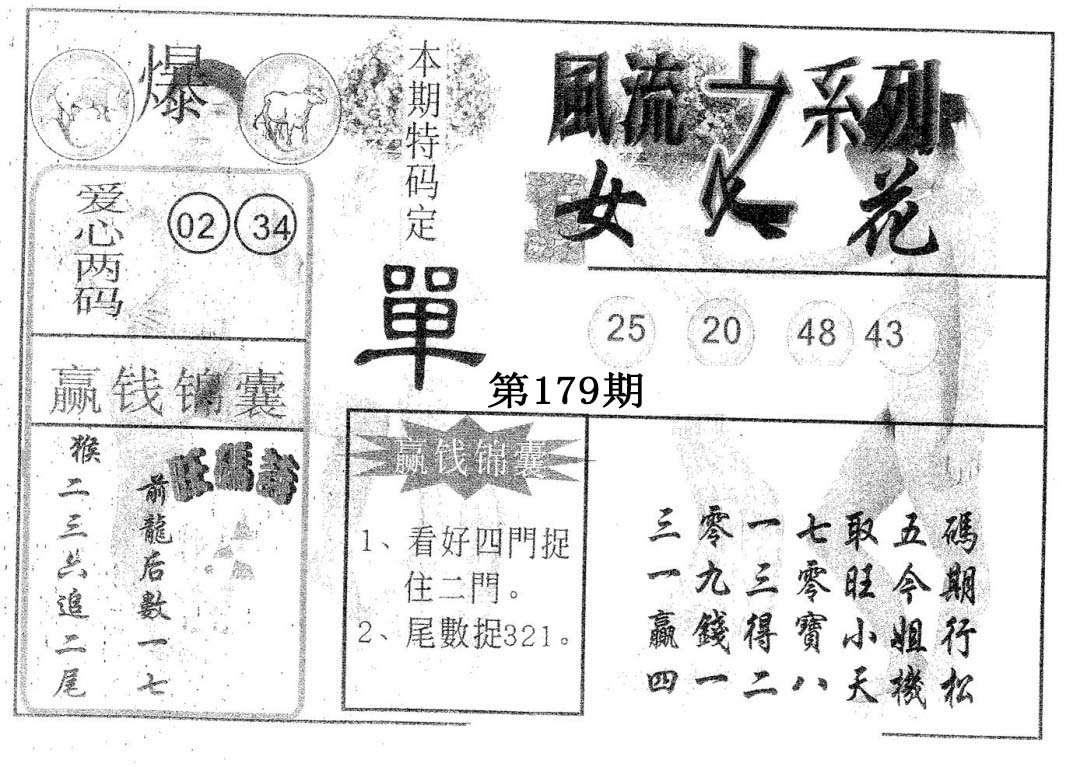 爆
本期特码定
單
風流之系列
女人花
爱心两码
02 34
25 20 48 43
赢钱锦囊
第179期
猴二三六追二尾
前龍后數一七
旺碼詩
赢钱锦囊
1、看好四門捉
住二門。
2、尾數捉321。
碼期行松
五今姐機
取旺小天
七零寶八
一三得二
零九錢一
三一贏四